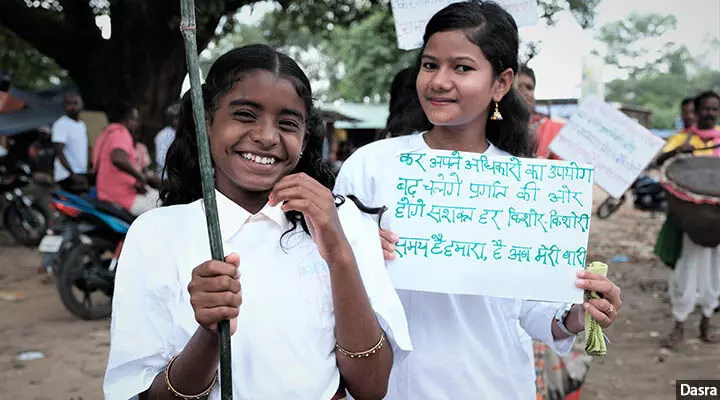 कर अपने अधिकार का उपयोग
बढ़ चलेगे प्रगति की ओर
होगे सशक्त हर किशोर, किशोरी
समय है हमारा, है अब मेरी बारी
Dasra